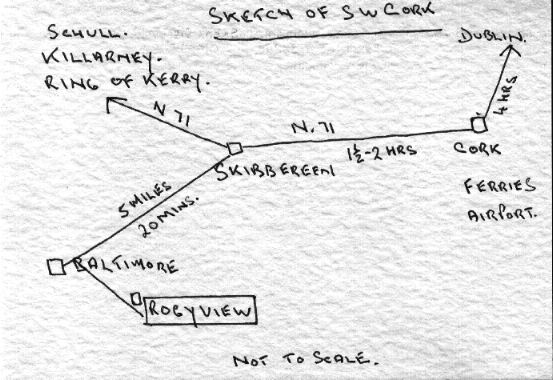 SKETCH OF SW CORK
SCHULL.
KILLARNEY.
RING OF KERRY.
DUBLIN.
4 HRS
N 71
N.71
1½-2 HRS
CORK
SKIBBEREEN
FERRIES
AIRPORT.
5 MILES
20 MINS.
BALTIMORE
ROGYVIEW
NOT TO SCALE.